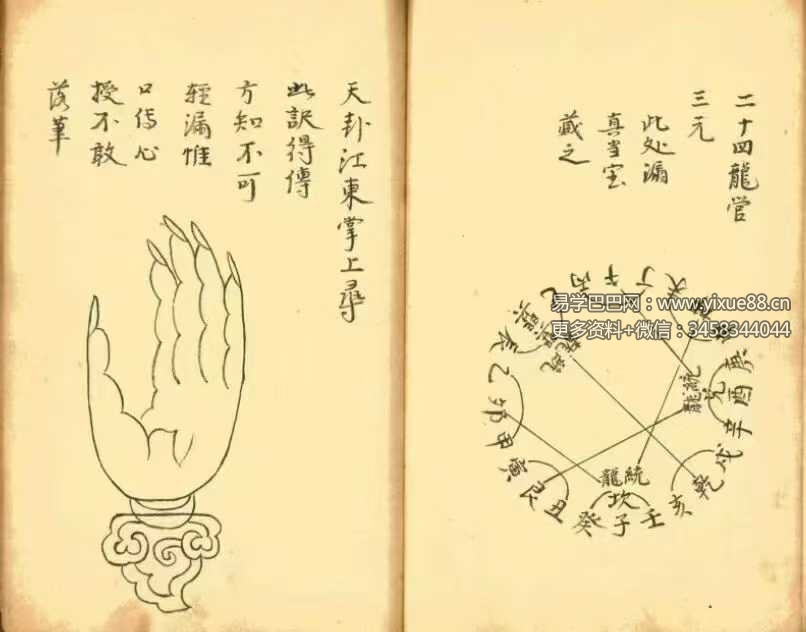 二十四龍管
三元
此处漏
真当宝
藏之
丙
午
丁
庚
酉
辛
戌
乾
亥
壬
子
癸
丑
艮
寅
甲
卯
乙
辰
統龍
兑
龍統
坎
易学巴巴网：www.yixue88.cn
更多资料+微信：3458344044
天卦江東掌上尋
此訣得傳
方知不可
輕漏惟
口傳心
授不敢
落筆